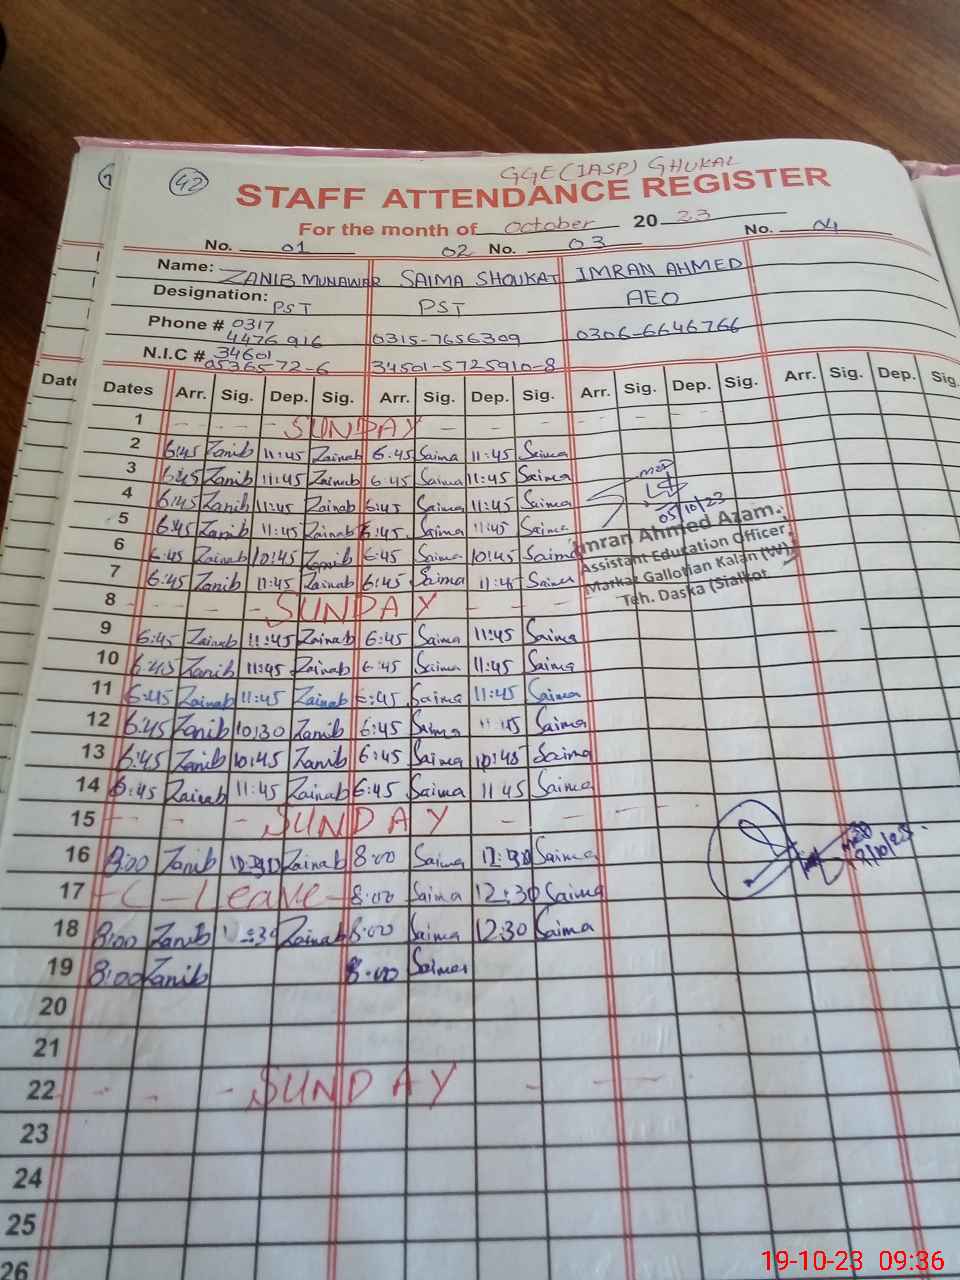 GGE (IASP) GHUKAL
42
STAFF ATTENDANCE REGISTER
For the month of October 20 23
No. 01 02 No. 03 No. 04
Name: ZANIB MUNAWAR SAIMA SHOUKAT IMRAN AHMED
Designation: PST PST AEO
Phone # 0317
4476 916 0315-7656309 0306-6646766
N.I.C # 34601
0536572-6 34501-5725910-8
Dates Arr. Sig. Dep. Sig. Arr. Sig. Dep. Sig. Arr. Sig. Dep. Sig. Arr. Sig. Dep. Sig.
1 SUNDAY
2 6:45 Zanib 11:45 Zainab 6:45 Saima 11:45 Saima
3 6:45 Zanib 11:45 Zainab 6:45 Saima 11:45 Saima
4 6:45 Zanib 11:45 Zainab 6:45 Saima 11:45 Saima
5 6:45 Zanib 11:45 Zainab 6:45 Saima 11:45 Saima
6 6:45 Zainab 10:45 Zanib 6:45 Saima 10:45 Saima
7 6:45 Zanib 11:45 Zainab 6:45 Saima 11:45 Saima
05/10/23
Imran Ahmed Azam.
Assistant Education Officer
Markaz Gallotian Kalan (W)
Teh. Daska (Sialkot
8 SUNDAY
9 6:45 Zainab 11:45 Zainab 6:45 Saima 11:45 Saima
10 6:45 Zanib 11:45 Zainab 6:45 Saima 11:45 Saima
11 6:45 Zainab 11:45 Zainab 6:45 Saima 11:45 Saima
12 6:45 Zanib 10:30 Zanib 6:45 Saima 11:45 Saima
13 6:45 Zanib 10:45 Zanib 6:45 Saima 10:45 Saima
14 6:45 Zainab 11:45 Zainab 6:45 Saima 11 45 Saima
15 SUNDAY
16 8:00 Zanib Zainab 8:00 Saima 12:30 Saima
17 C - Leave 8:00 Saima 12:30 Saima
18 8:00 Zanib Zainab 8:00 Saima 12:30 Saima
19 8:00 Zanib 8:00 Saima
20
21
22 SUNDAY
23
24
25
26
19-10-23 09:36